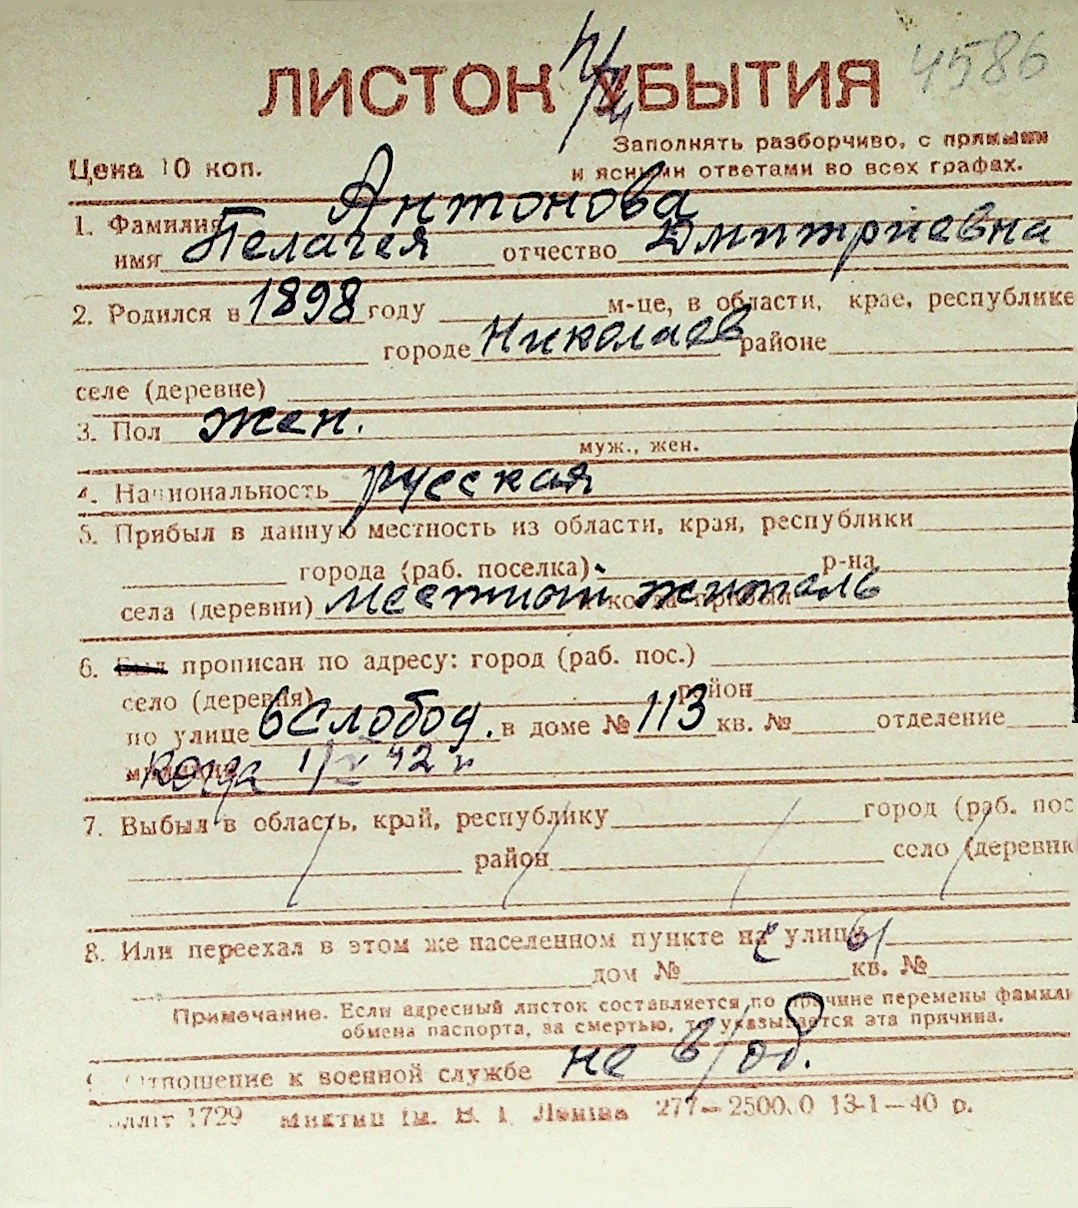 4586
ЛИСТОК УБЫТИЯ
Заполнять разборчиво, с прямыми
Цена 10 коп.
и ясными ответами во всех графах.
1. Фамилия Антонова
имя Пелагея отчество Дмитриевна
2. Родился в 1898 году м-це, в области, крае, республике
городе Николаев районе
селе (деревне)
3. Пол жен.
муж., жен.
4. Национальность русская
5. Прибыл в данную местность из области, края, республики
города (раб. поселка) р-на
села (деревни) местный житель
6. Был прописан по адресу: город (раб. пос.)
село (деревня) район
по улице 6 Слобод. в доме № 113 кв. № отделение
когда 1/V 42 г
7. Выбыл в область, край, республику город (раб. пос
район село (деревню
8. Или переехал в этом же населенном пункте на улицу
дом № кв. №
Примечание. Если адресный листок составляется по причине перемены фамили
обмена паспорта, за смертью, то указывается эта причина.
Отношение к военной службе не в/об.
1729 277—2500.0 13-1—40 р.